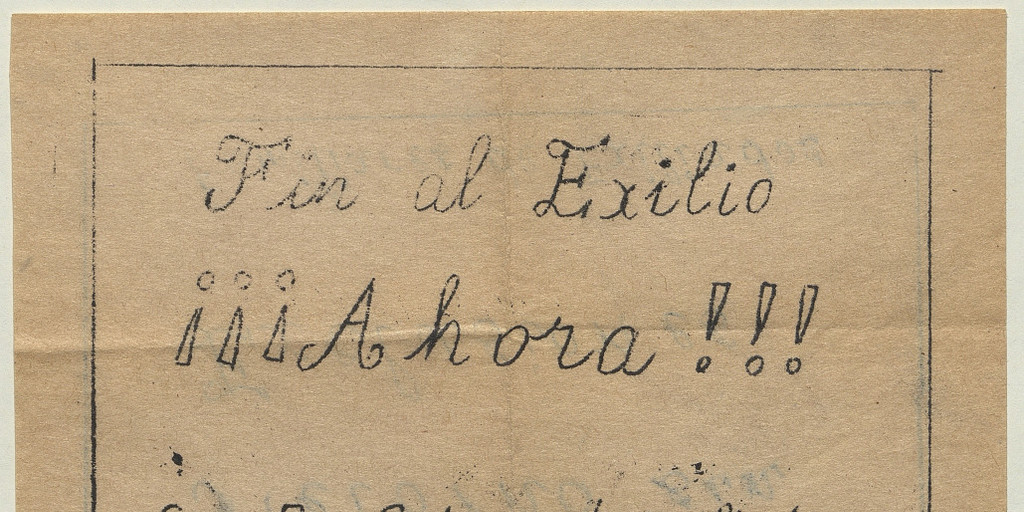 Fin al Exilio
¡¡¡Ahora!!!